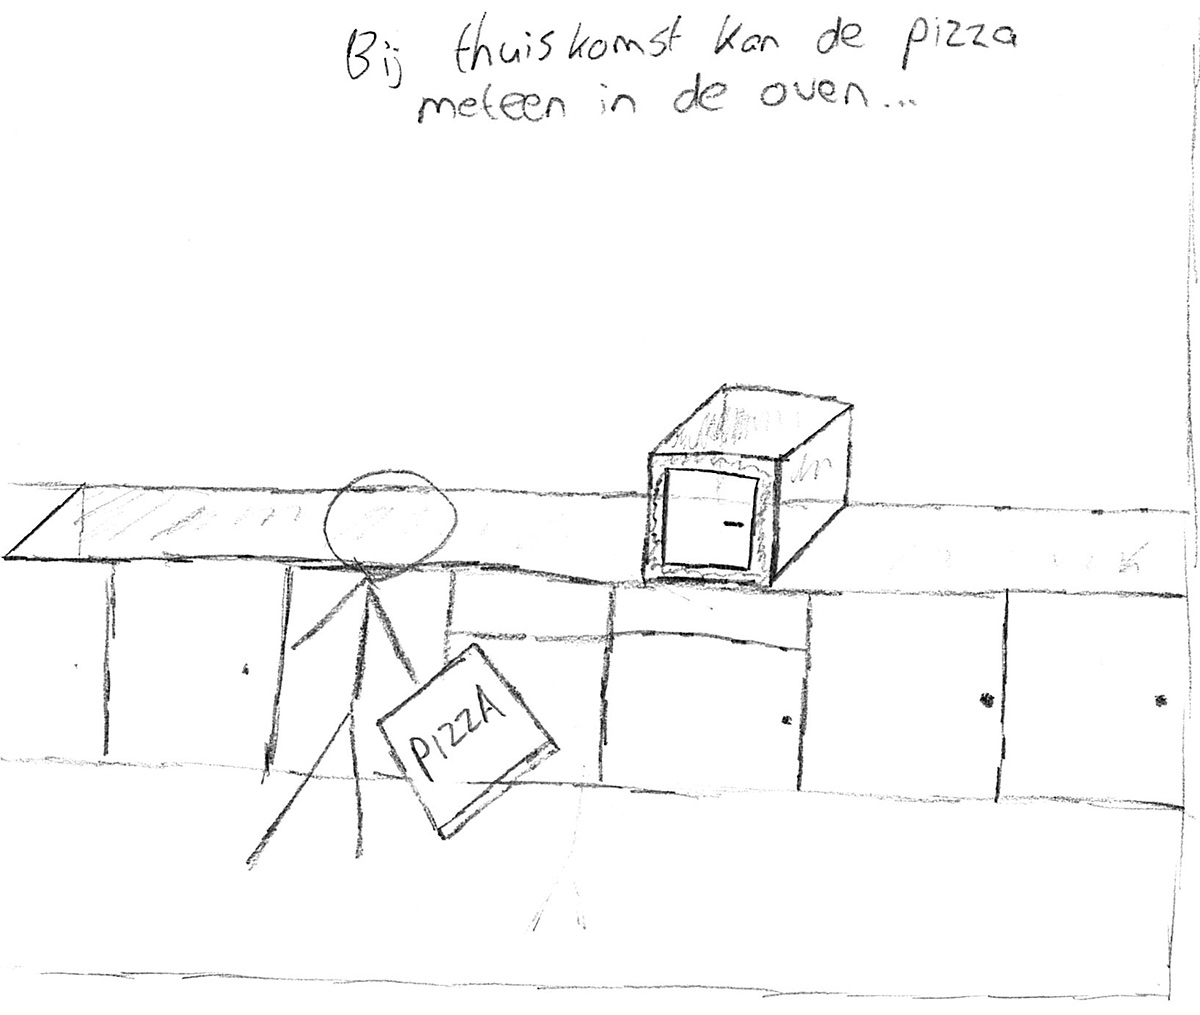 Bij thuiskomst kan de pizza
meteen in de oven...
PIZZA